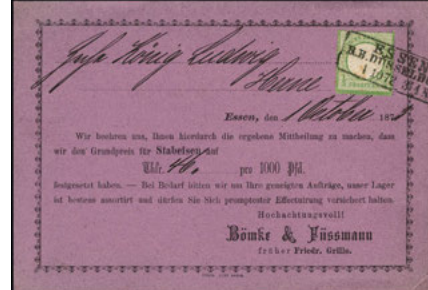 König Ludwig
Herne
ESSEN
R.B. DÜSSELDORF
Essen, den 1 October 187
Wir beehren uns, Ihnen hierdurch die ergebene Mittheilung zu machen, dass
wir den Grundpreis für Stabeisen auf
Thlr. 46, pro 1000 Pfd.
festgesetzt haben. — Bei Bedarf bitten wir um Ihre geneigten Aufträge, unser Lager
ist bestens assortirt und dürfen Sie Sich promptester Effectuirung versichert halten.
Hochachtungsvoll!
Bömke & Füssmann
früher Friedr. Grillo.